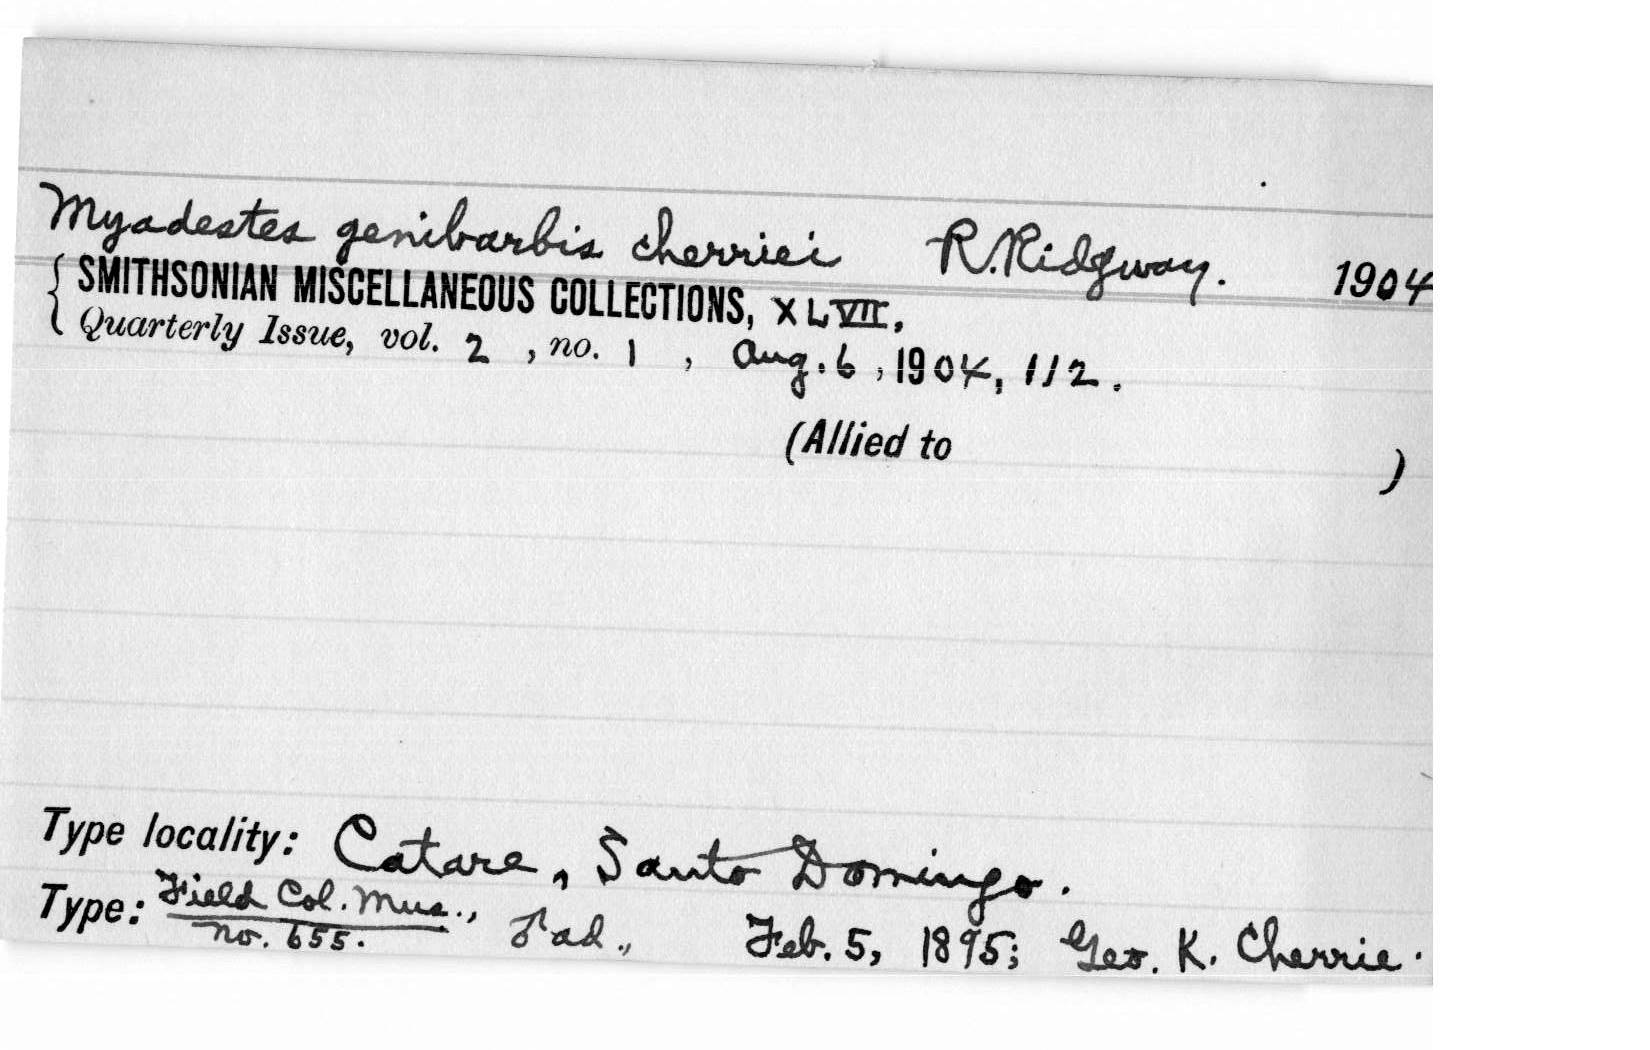 Myadestes genibarbis cherriei R. Ridgway. 1904
{ SMITHSONIAN MISCELLANEOUS COLLECTIONS, XLVII,
Quarterly Issue, vol. 2, no. 1, Aug. 6, 1904, 112.
(Allied to )
Type locality: Catare, Santo Domingo.
Type: Field Col. Mus., ad., Feb. 5, 1895; Geo. K. Cherrie.
no. 655.